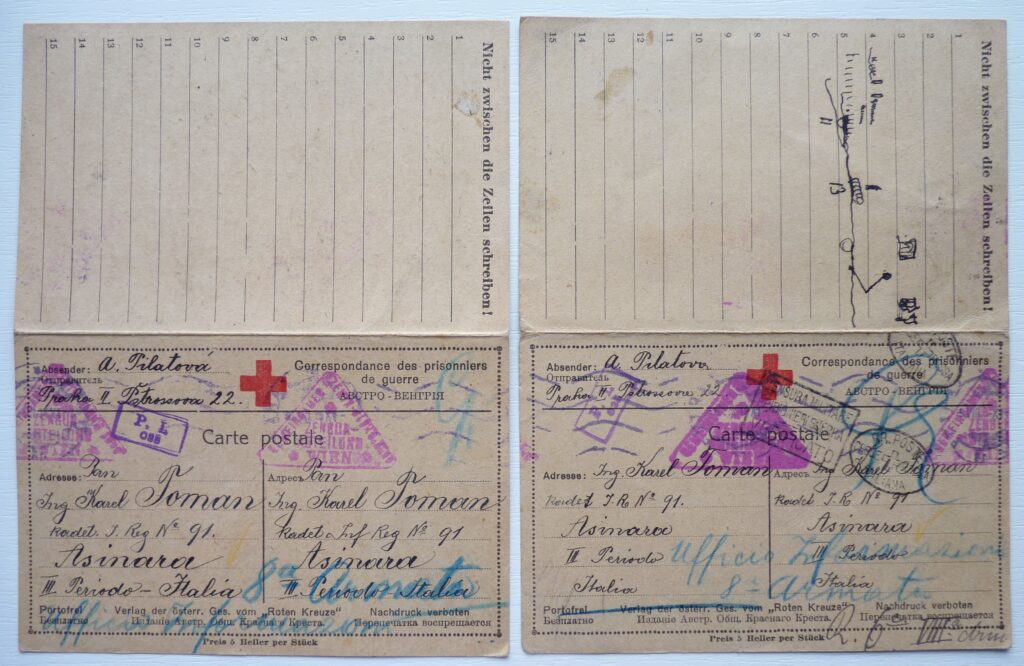 Nicht zwischen die Zeilen schreiben!
1
2
3
4
5
6
7
8
9
10
11
12
13
14
15
Absender: A. Pilatová
Отправитель
Praha II. Pštrossova 22.
Correspondance des prisonniers
de guerre
АВСТРО - ВЕНГРІЯ
P. L
Carte postale
ZENSUR
WIEN
Adresse: Pan
Ing Karel Toman
Kadet. I. Reg No 91.
Asinara
III Periodo - Italiá
Адресъ Pan
Ing. Karel Toman
Kadet Inf Reg No 91
Asinara
III. Periodo Italia
8a Armata
Ufficio
Portofrei
Безплатно
Verlag der österr. Ges. vom „Roten Kreuze“
Изданіе Австр. Общ. Краснаго Креста.
Nachdruck verboten
Перепечатка воспрещается
Preis 5 Heller per Stück
Nicht zwischen die Zeilen schreiben!
1
2
3
4
5
6
7
8
9
10
11
12
13
14
15
Absender: A. Pilatov
Отправитель
Praha II. Pštrossova 22.
Correspondance des prisonniers
de guerre
АВСТРО - ВЕНГРІЯ
Carte postale
CENSURA MILITARE
Adresse:
Ing. Karel Toman
Kadet I. R. No 91.
Asinara
III Periodo
Italia
Адресъ
Ing Karel Toman
Kadet. I. R. No 91
Asinara
III Periodo
Italia
Ufficio Informazioni
8a Armata
Portofrei
Безплатно
Verlag der österr. Ges. vom „Roten Kreuze“
Изданіе Австр. Общ. Краснаго Креста.
Nachdruck verboten
Перепечатка воспрещается
Preis 5 Heller per Stück